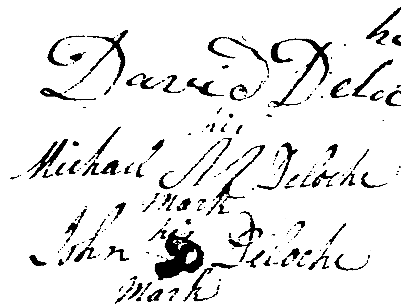 hi
David Deloc
his
Michael M Deloche
mark
his
John D Deloche
mark